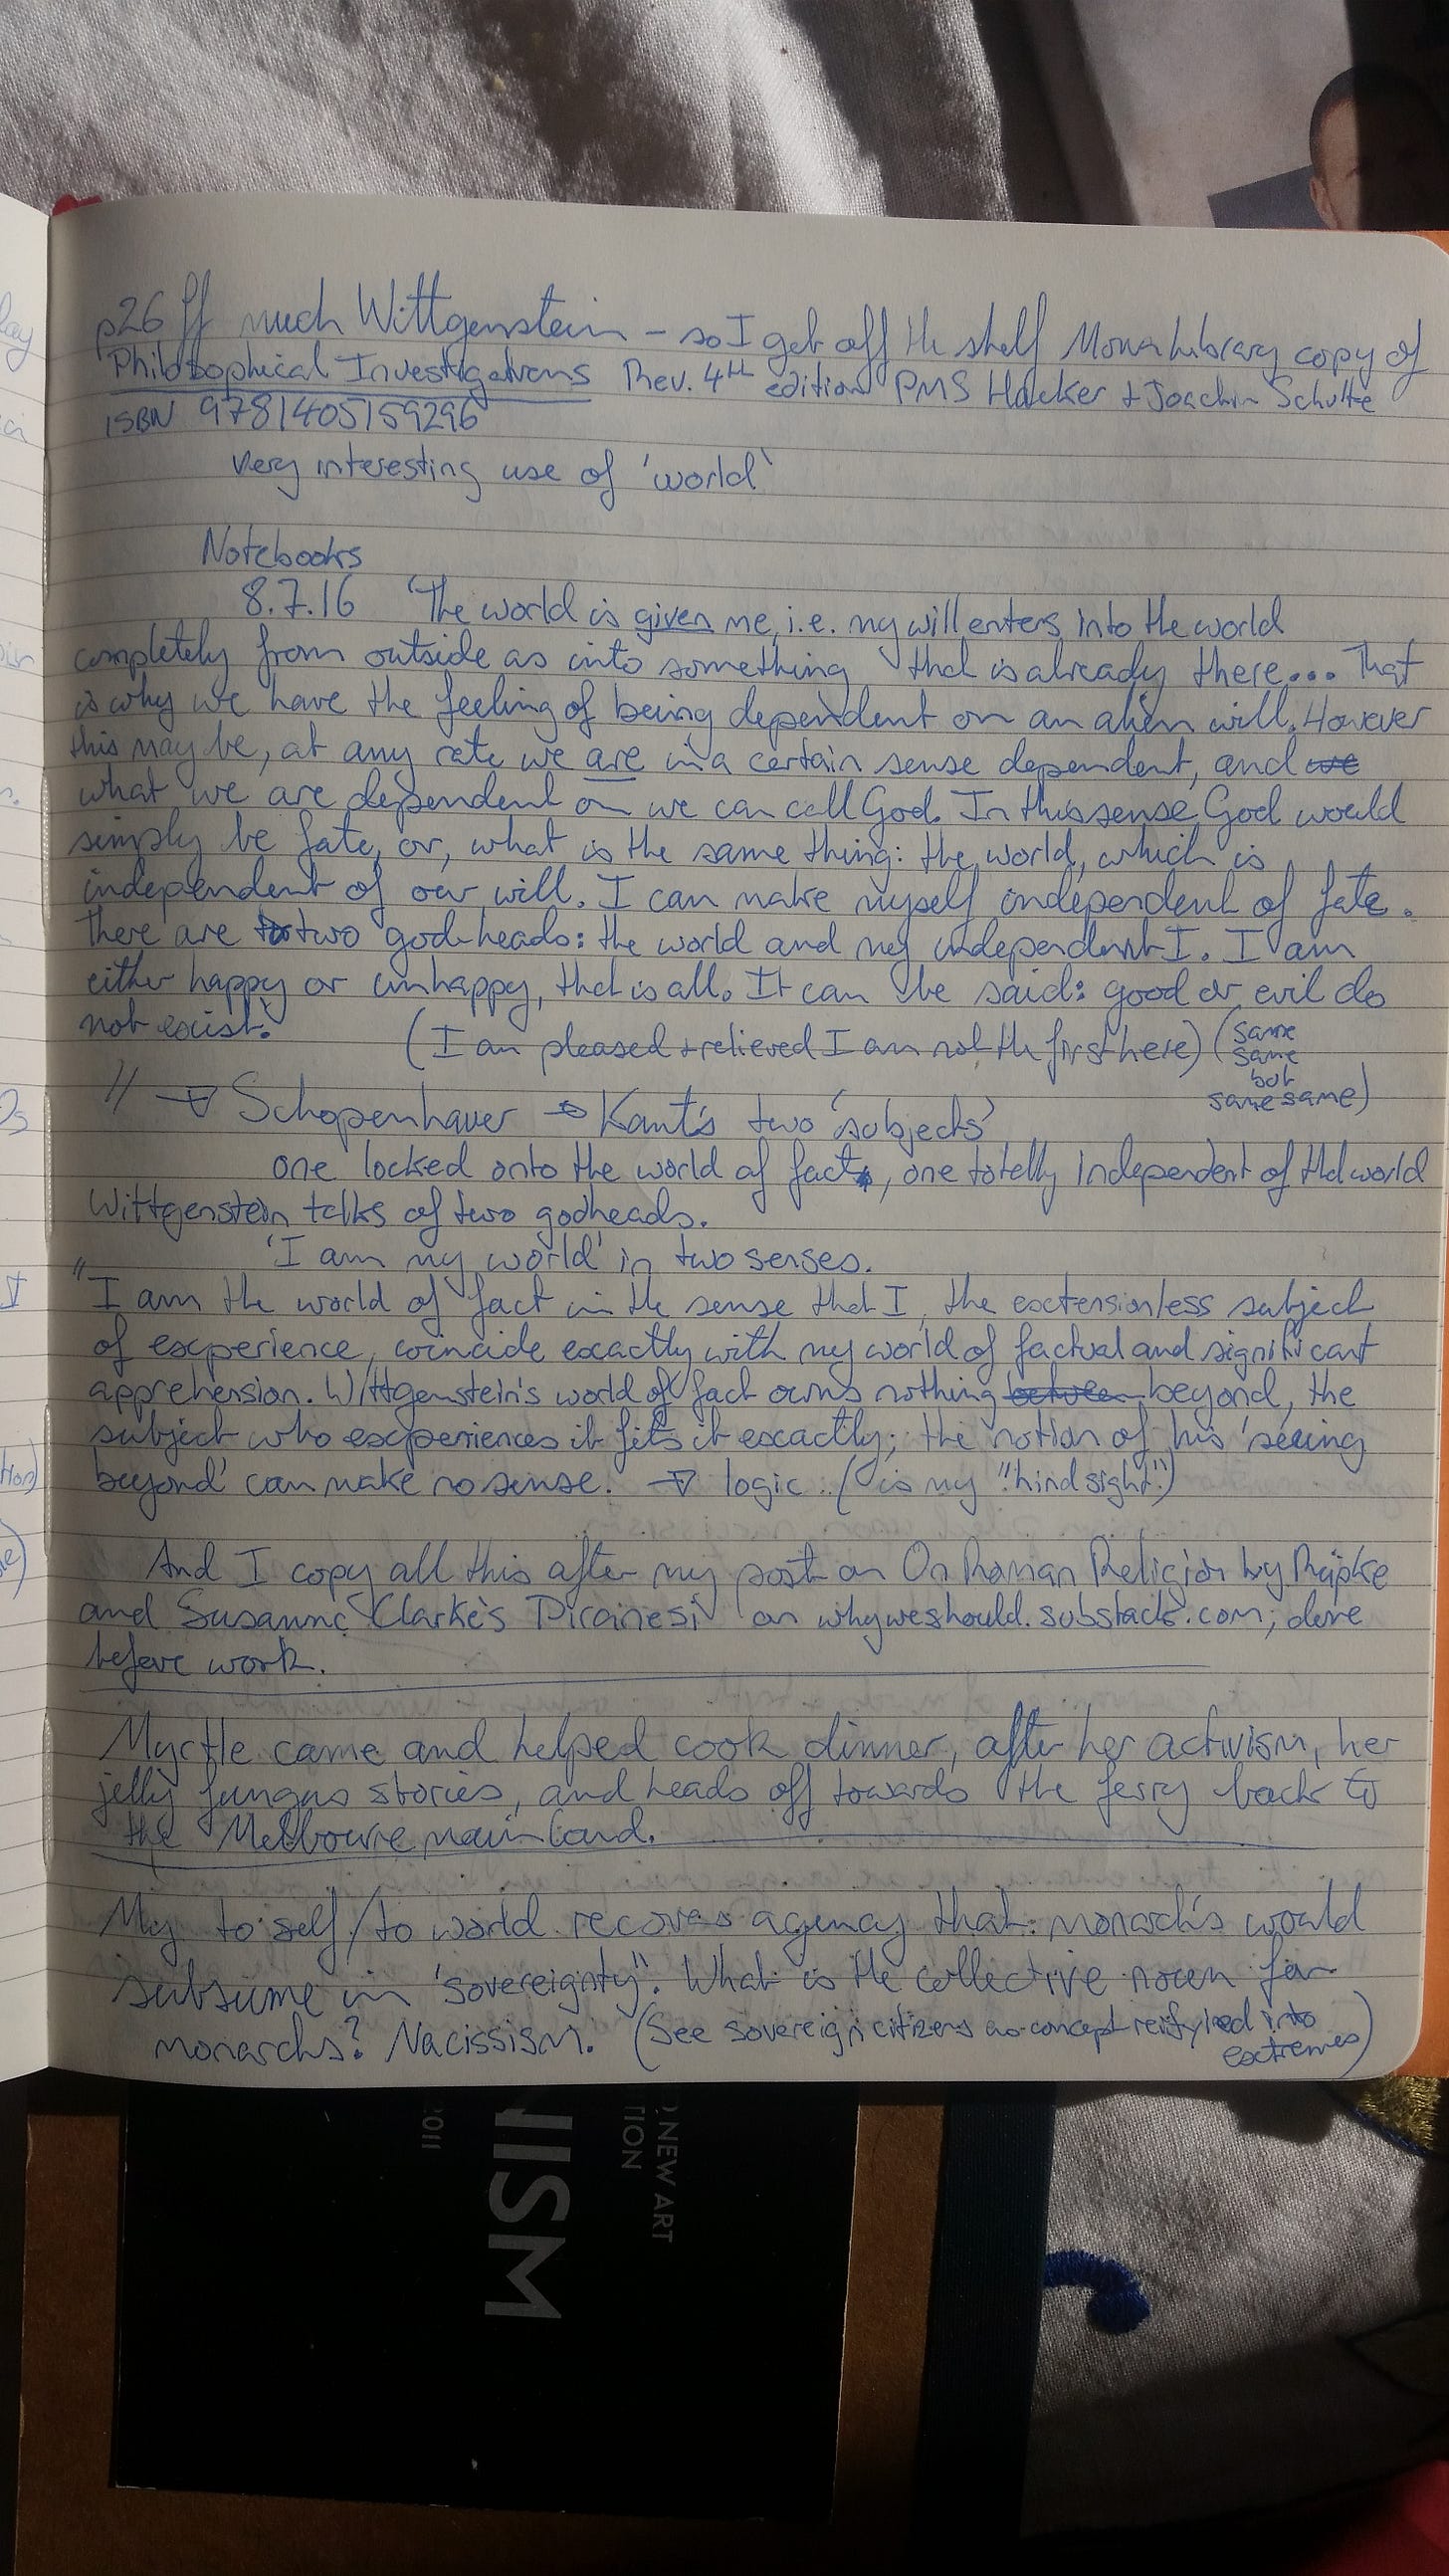 p26 ff much Wittgenstein – so I get off the shelf Mona Library copy of
Philosophical Investigations Rev. 4th edition PMS Hacker + Joachim Schulte
ISBN 9781405159296
Very interesting use of 'world'
Notebooks
8.7.16 'The world is given me, i.e. my will enters into the world
completely from outside as into something that is already there... That
is why we have the feeling of being dependent on an alien will. However
this may be, at any rate we are in a certain sense dependent, and we
what we are dependent on we can call God. In this sense God would
simply be fate, or, what is the same thing: the world, which is
independent of our will. I can make myself independent of fate.
There are two godheads: the world and my independent I. I am
either happy or unhappy, that is all. It can be said: good or evil do
not exist.' (I am pleased + relieved I am not the first here) (same
same
but
same same)
// → Schopenhauer → Kant's two 'subjects'
one locked onto the world of fact, one totally independent of that world
Wittgenstein talks of two godheads.
'I am my world' in two senses.
"I am the world of fact in the sense that I, the extensionless subject
of experience, coincide exactly with my world of factual and significant
apprehension. Wittgenstein's world of fact owns nothing between beyond, the
subject who experiences it fits it exactly; the notion of his 'seeing
beyond' can make no sense. → logic (is my "hindsight")
And I copy all this after my post on On Roman Religion by Rüpke
and Susanne Clarke's Piranesi on whyweshould.substack.com, done
before work.
Myrtle came and helped cook dinner, after her activism, her
jelly fungus stories, and heads off towards the ferry back to
the Melbourne mainland.
My to self/to world recovers agency that monarchs would
subsume in 'sovereignty". What is the collective noun for
monarchs? Nacissism. (See sovereign citizens as concept reifyied into
extremes)
2011
NISM
TION
NEW ART